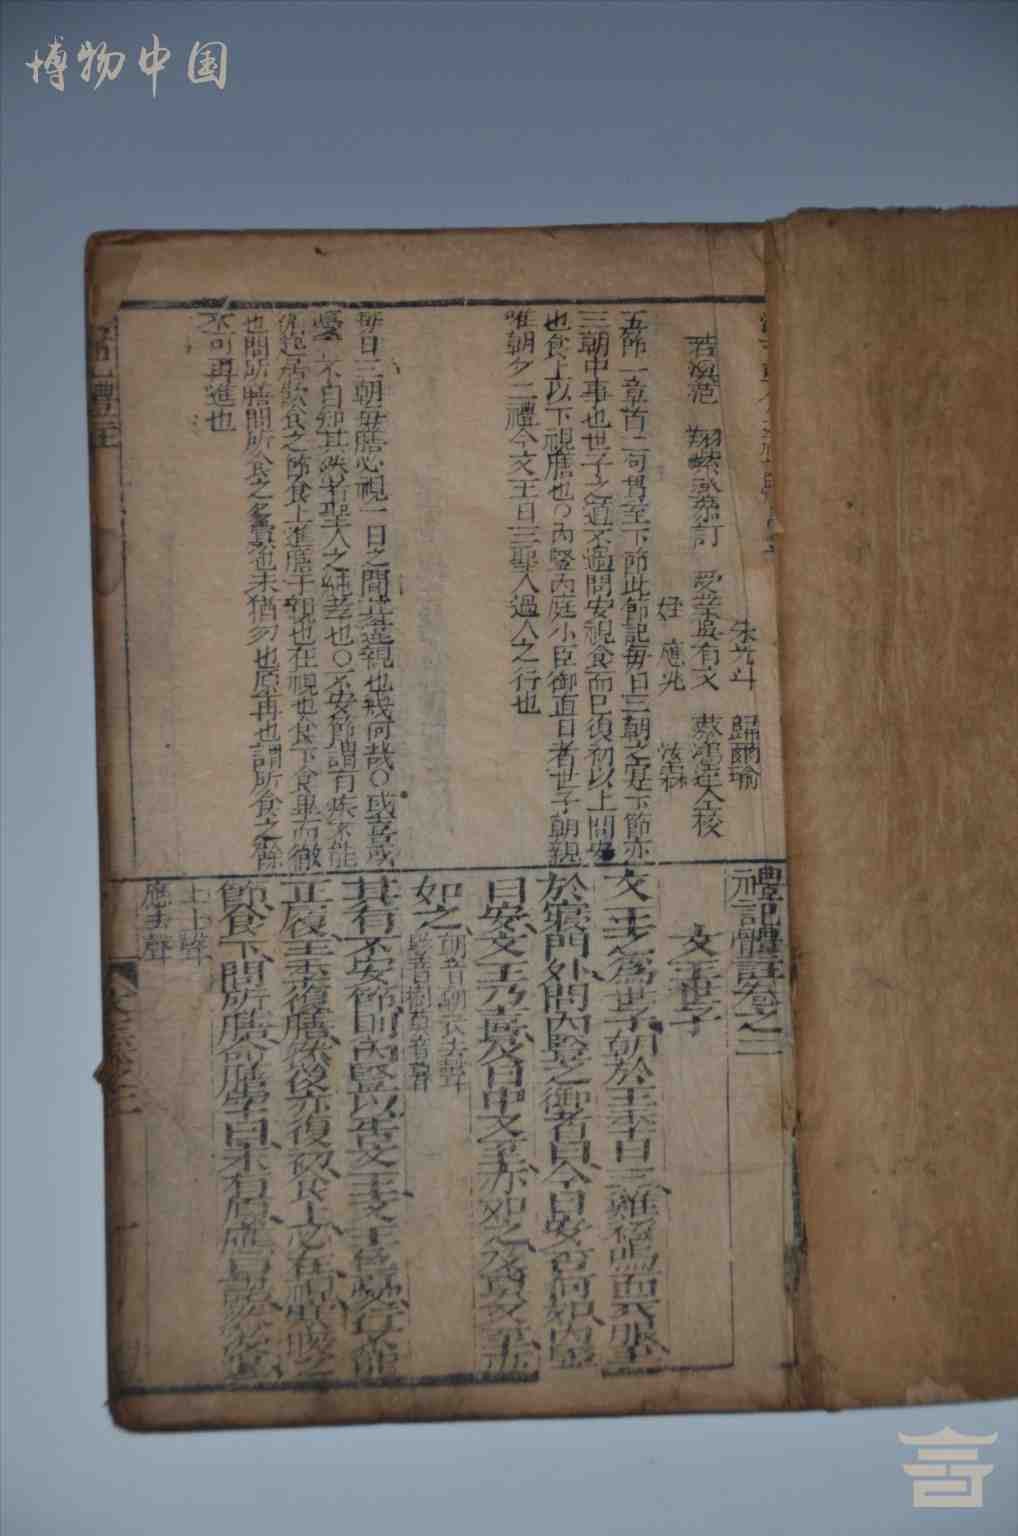 博物中国
若溪范 翔紫登參訂 受業吳有文 蔡鴻逵仝校
朱光斗 歸爾瑜
姪 應兆 炫霖
五節一章首二句貫至下節此節記每日三朝之定下節亦
三朝中事也世子之道不過問安視食而已復初以上問安
也食上以下視膳也〇內豎內庭小臣御直日者世子朝親
唯朝夕二禮今文王日三聖人過人之行也
每日三朝每膳必視一日之間其違親也幾何哉〇或喜或
憂 不自知其然者聖人之純孝也〇不安節謂有疾不能
循起居飲食之節食上進膳于親也在視也食下食畢而徹
也問所膳問所食之多寡也末猶勿也原再也謂所食之餘
不可再進也
禮記體註卷之三
文王世子
文王之爲世子朝於王季日三雞初鳴而衣服至
於寢門外問內豎之御者曰今日安否何如內豎
曰安文王乃喜及日中又至亦如之及莫又至亦
如之
朝音潮衣去聲
豎音樹莫音暮
其有不安節則內豎以告文王文王色憂行不能
正履王季復膳然後亦復初食上必在視寒暖之
節食下問所膳命膳宰曰末有原應曰諾然後退
上上聲
應去聲